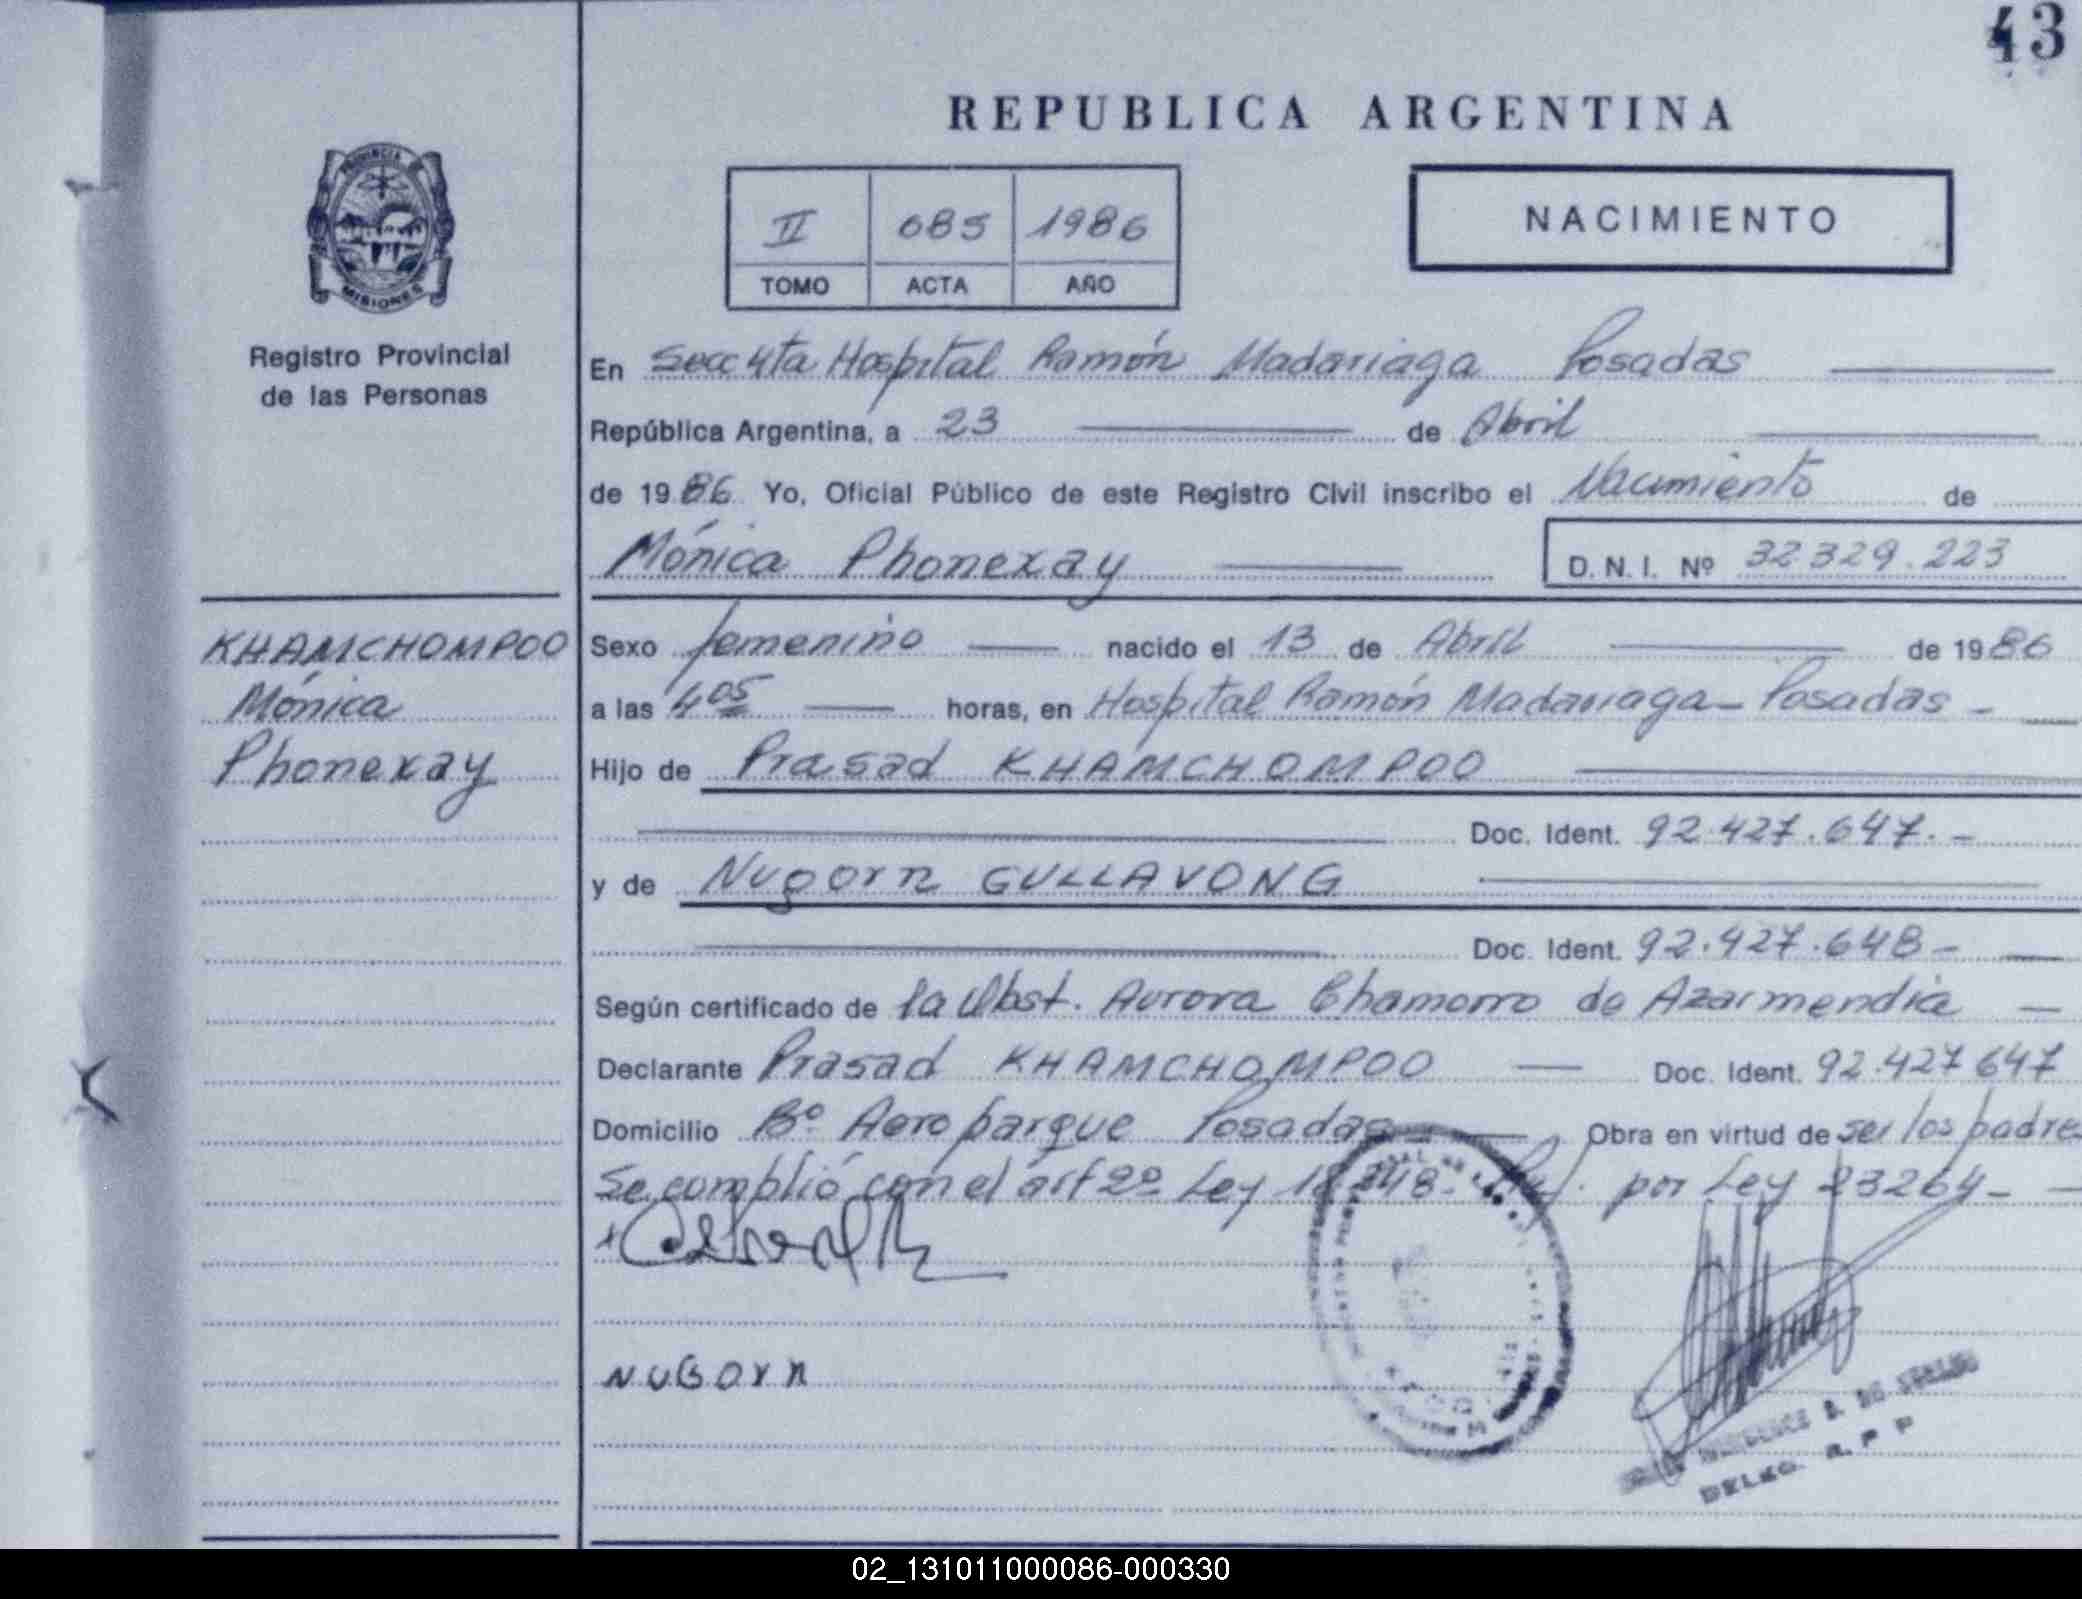 43
REPUBLICA ARGENTINA
PROVINCIA DE
MISIONES
Registro Provincial
de las Personas
II 685 1986
TOMO ACTA AÑO
NACIMIENTO
En Secc 4ta Hospital Ramón Madariaga Posadas
República Argentina, a 23 de Abril
de 1986 Yo, Oficial Público de este Registro Civil inscribo el Nacimiento de
Mónica Phonexay D. N. I. Nº 32.329.223
KHAMCHOMPOO
Mónica
Phonexay
Sexo femenino nacido el 13 de Abril de 1986
a las 4 05 horas, en Hospital Ramón Madariaga - Posadas -
Hijo de Prasad KHAMCHOMPOO
Doc. Ident. 92.427.647.-
y de Nugorn GULLAVONG
Doc. Ident. 92.427.648-
Según certificado de la Obst. Aurora Chamorro de Azarmendia
Declarante Prasad KHAMCHOMPOO Doc. Ident. 92.427 647
Domicilio Bº Aeroparque Posadas Obra en virtud de ser los padres
Se complió con el art 2º Ley 18248- por Ley 23264-
NUGORN
DELEG. R. P. P
02_131011000086-000330